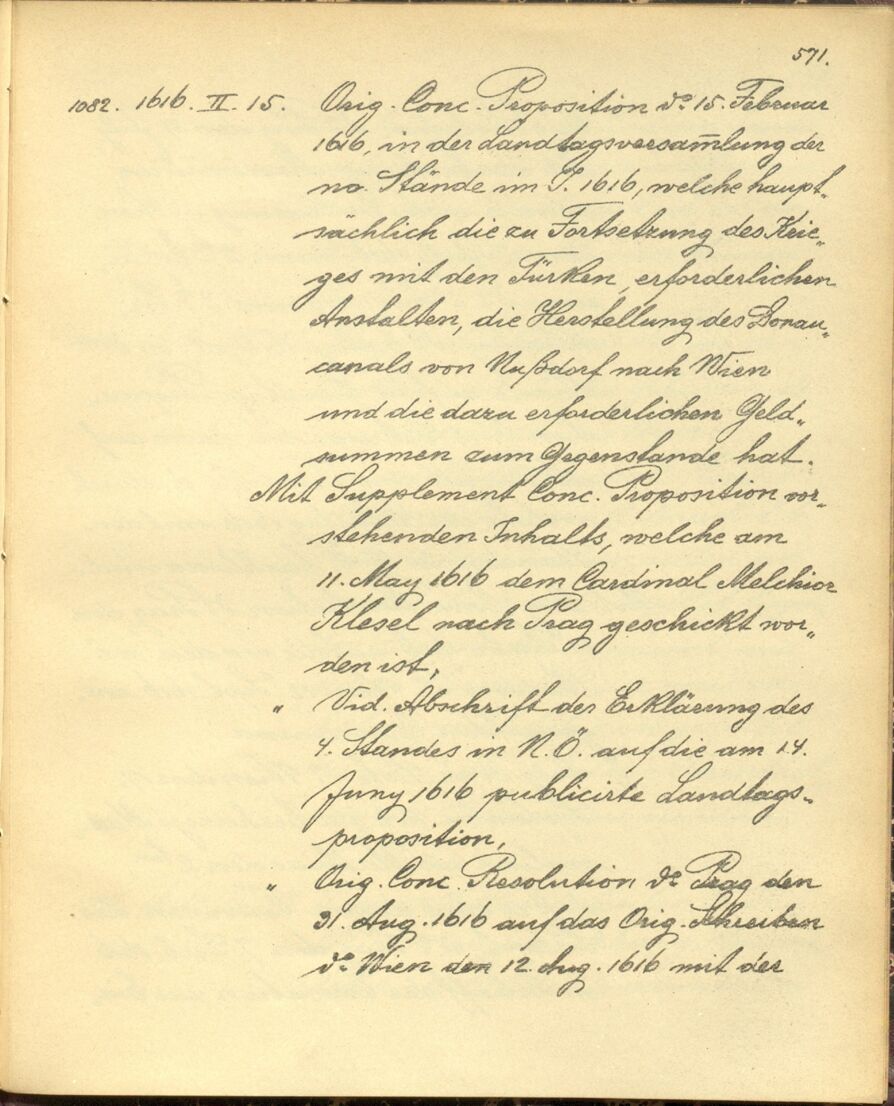 571.
1082. 1616. II. 15. Orig. Conc. Proposition do 15. Februar
1616, in der Landtagsversam̅lung der
no. Stände im J. 1616, welche haupt„
sächlich die zu Fortsetzung des Krie„
ges mit den Türken, erforderlichen
Anstalten, die Herstellung des Donau„
canals von Nußdorf nach Wien
und die dazu erforderlichen Geld„
summen zum Gegenstande hat.
Mit Supplement Conc. Proposition vor„
stehenden Inhalts, welche am
11. May 1616 dem Cardinal Melchior
Klesel nach Prag geschickt wor„
den ist,
„ Vid. Abschrift der Erklärung des
4. Standes in N.Ö. auf die am 14.
Juny 1616 publicirte Landtags„
proposition,
„ Orig. Conc. Resolution do Prag den
31. Aug. 1616 auf das Orig. Schreiben
do Wien den 12. Aug. 1616 mit der